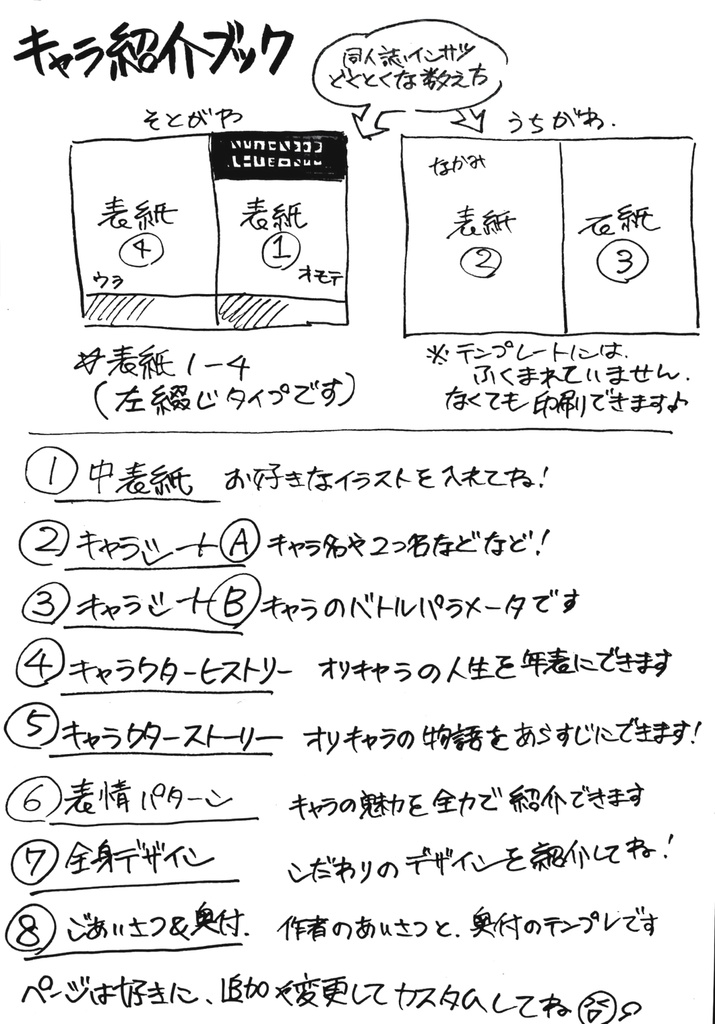 キャラ紹介ブック
同人誌インサツ
どくとくな数え方
そとがわ
うちがわ.
表紙
④
ウラ
表紙
①
オモテ
なかみ
表紙
②
表紙
③
表紙1-4
(左綴じタイプです)
※テンプレートには.
ふくまれていません.
なくても印刷できます♪
① 中表紙 お好きなイラストを入れてね!
② キャラシートⒶ キャラ名や2つ名などなど!
③ キャラシートⒷ キャラのバトルパラメータです
④ キャラクターヒストリー オリキャラの人生を年表にできます
⑤ キャラクターストーリー オリキャラの物語をあらすじにできます!
⑥ 表情パターン キャラの魅力を全力で紹介できます
⑦ 全身デザイン こだわりのデザインを紹介してね!
⑧ ごあいさつ&奥付. 作者のあいさつと、奥付のテンプレです
ページは好きに、追加や変更してカスタムしてね